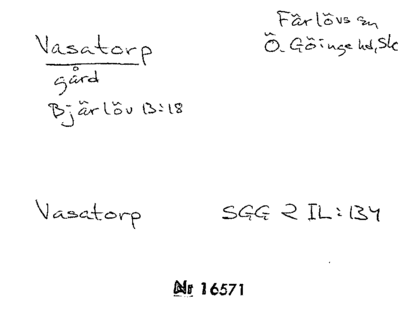 Färlövs sn
Vasatorp
Ö. Göinge hd, Sk
gård
Bjärlöv 13:18
Vasatorp SGG 2 IL:134
Nr 16571